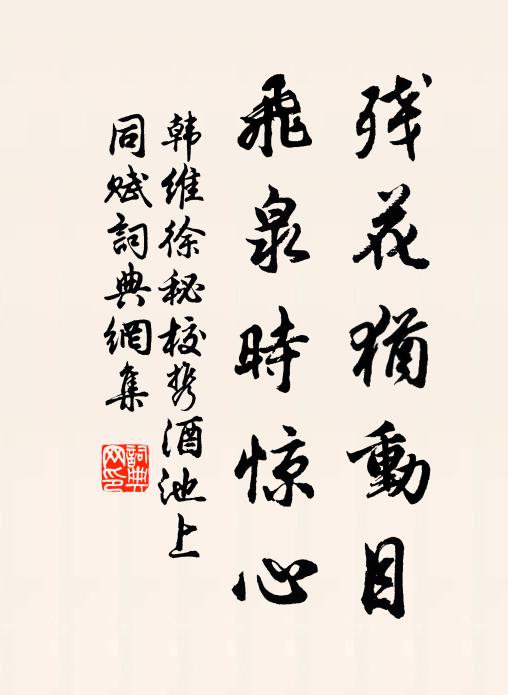 残花猶動目
飛泉時惊心
韩維徐秘校携酒池上
同赋詞典網集
詞典网印